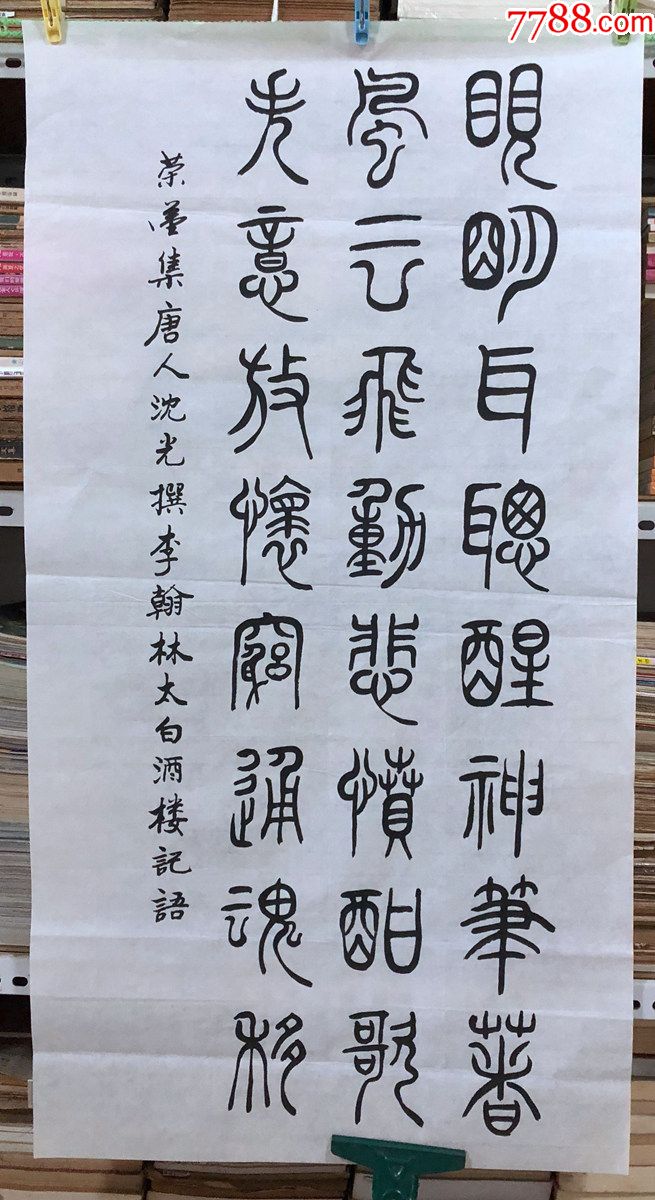 7788.com
眼明耳聰醒神筆著
風云飛動悲憤酣歌
失意放懷窮通魂移
荣集唐人沈光撰李翰林太白酒楼記語